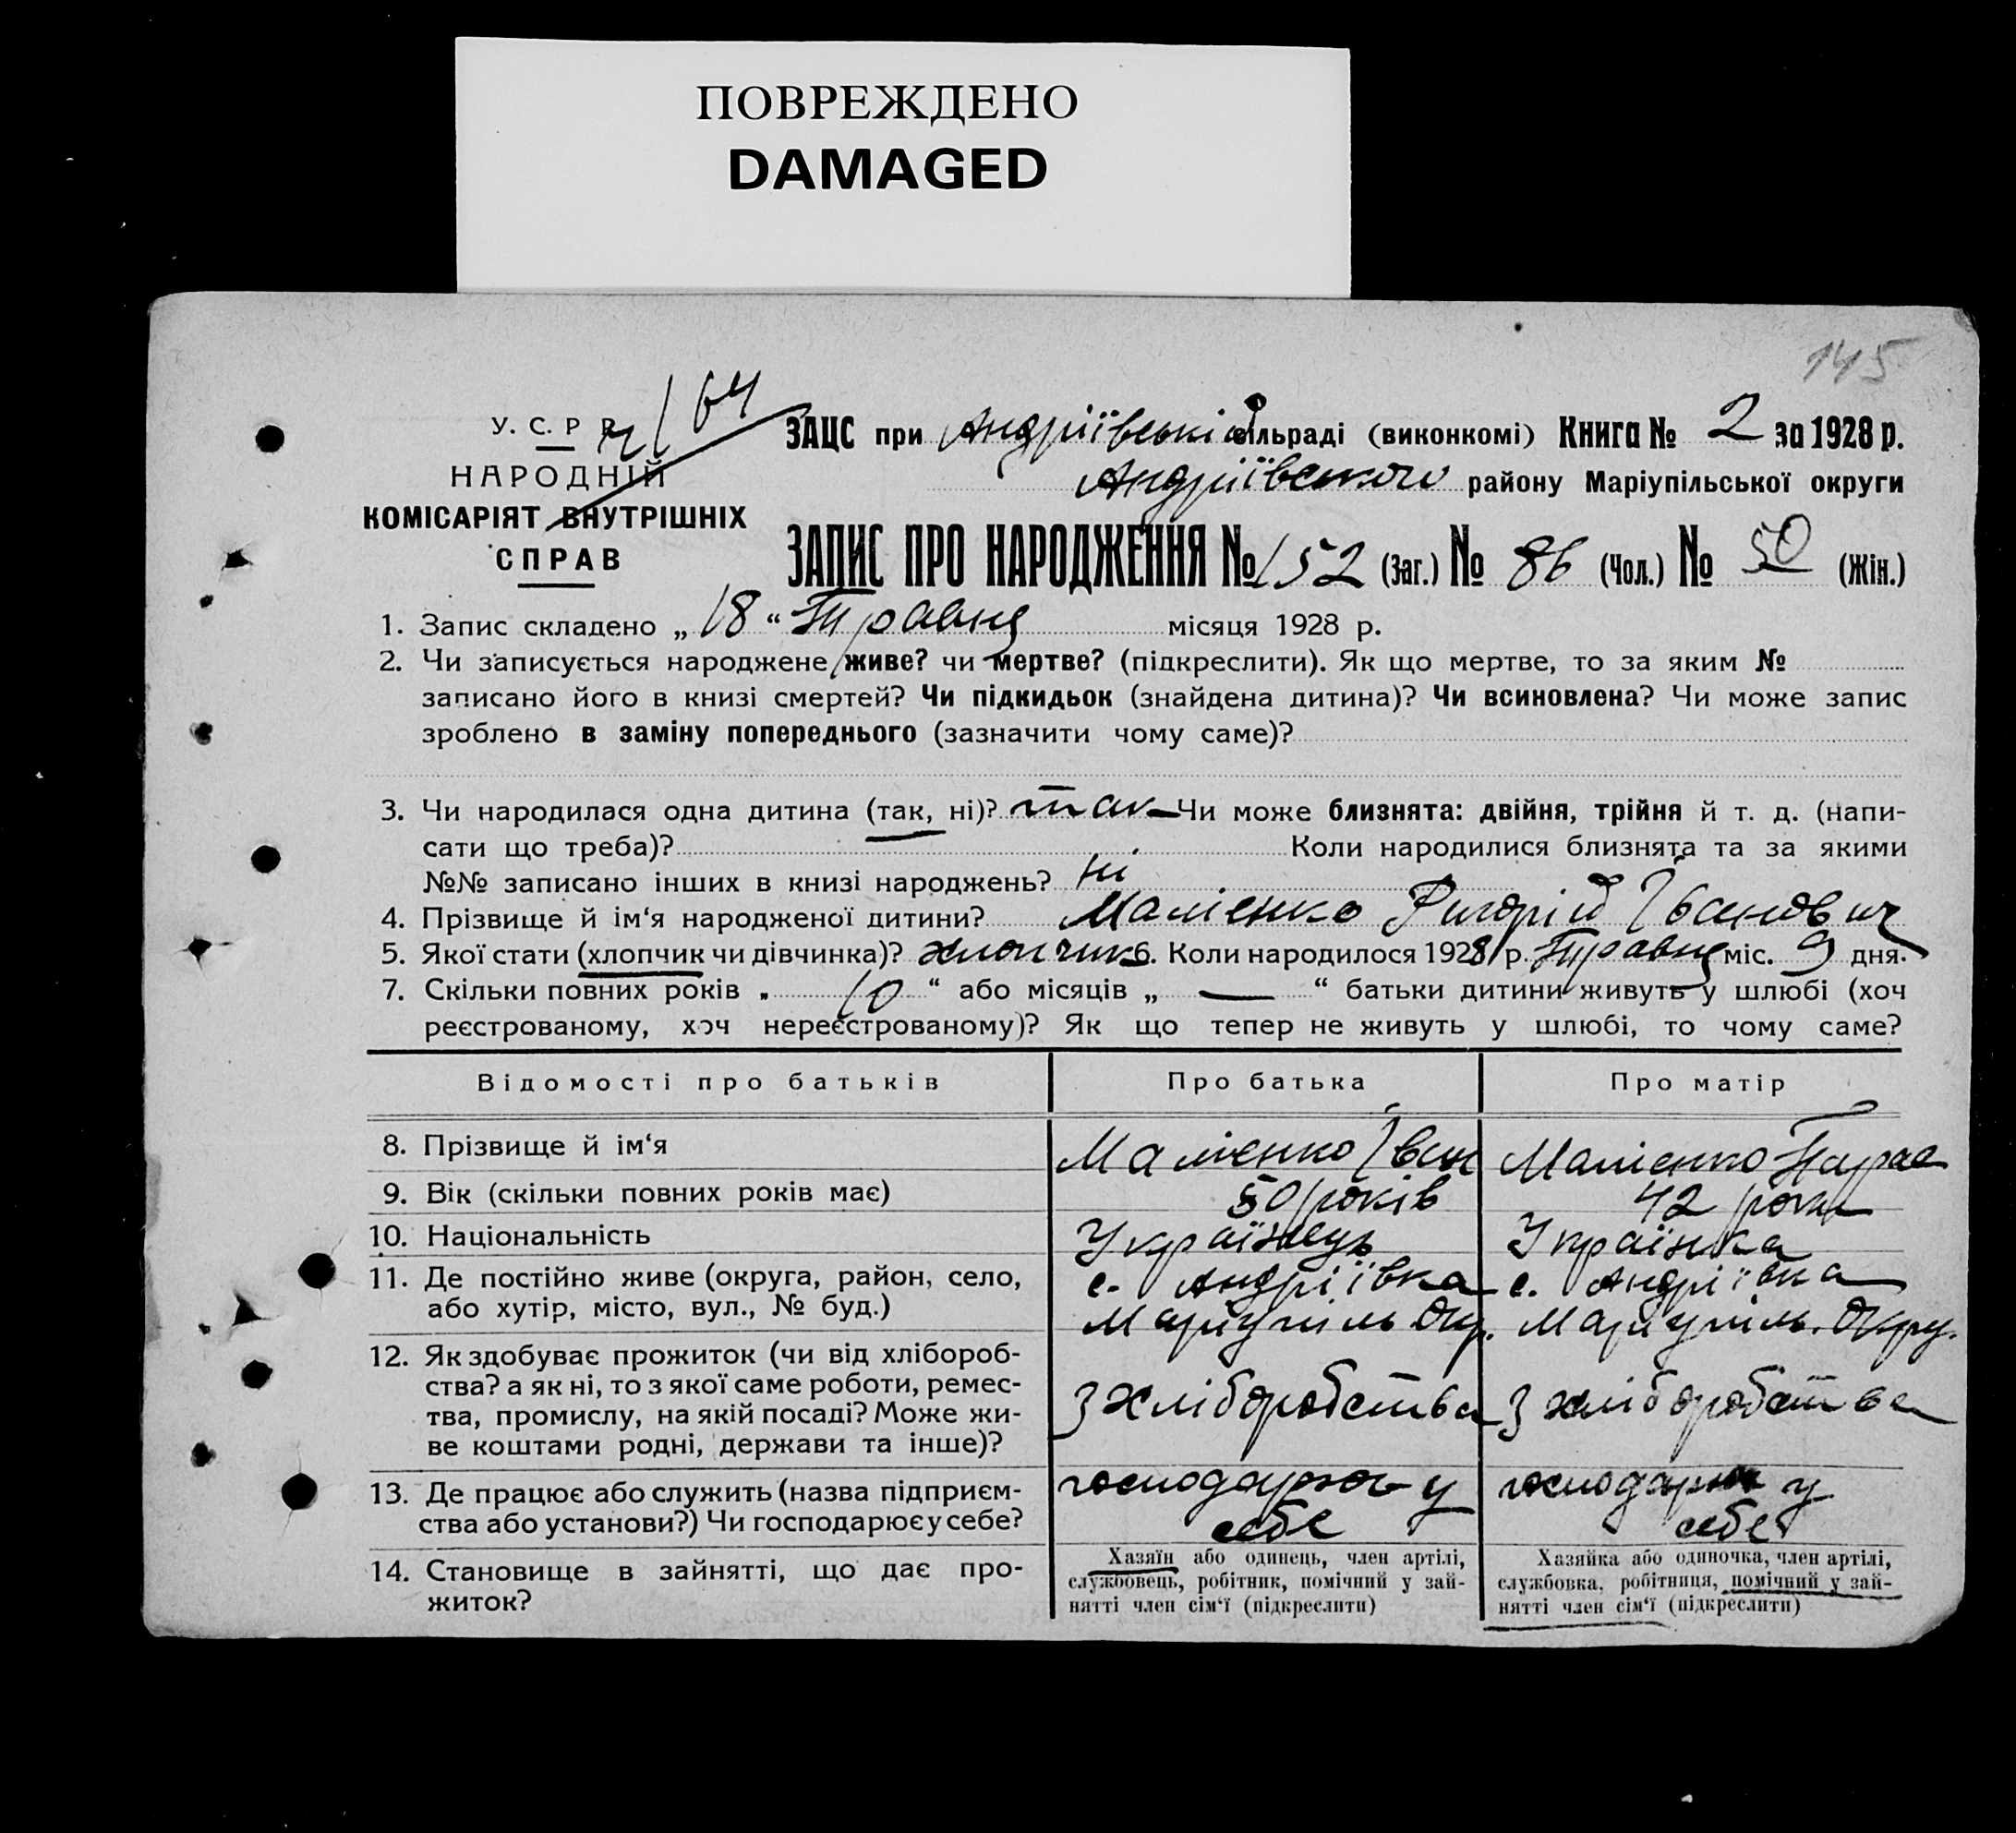 ПОВРЕЖДЕНО
DAMAGED
145
У. С. Р Р.
64
НАРОДНІЙ
КОМІСАРІЯТ ВНУТРІШНІХ
СПРАВ
ЗАЦС при Андріївській сільраді (виконкомі) Книга № 2 за 1928 р.
Андріївського району Маріупільської округи
ЗАПИС ПРО НАРОДЖЕННЯ № 152 (Заг.) № 86 (Чол.) № 50 (Жін.)
1. Запис складено „ 18 “ Травня місяця 1928 р.
2. Чи записується народжене живе? чи мертве? (підкреслити). Як що мертве, то за яким №
записано його в книзі смертей? Чи підкидьок (знайдена дитина)? Чи всиновлена? Чи може запис
зроблено в заміну попереднього (зазначити чому саме)?
3. Чи народилася одна дитина (так, ні)? так Чи може близнята: двійня, трійня й т. д. (напи-
сати що треба)? Коли народилися близнята та за якими
№№ записано інших в книзі народжень? ні
4. Прізвище й ім‘я народженої дитини? Малієнко Григорій Іванович
5. Якої стати (хлопчик чи дівчинка)? хлопчик 6. Коли народилося 1928 р. Травня міс. 9 дня.
7. Скільки повних років „ 10 “ або місяців „ — “ батьки дитини живуть у шлюбі (хоч
реєстрованому, хоч нереєстрованому)? Як що тепер не живуть у шлюбі, то чому саме?
Відомості про батьків Про батька Про матір
8. Прізвище й ім‘я Малієнко Іван Малієнко
9. Вік (скільки повних років має) 50 років 42 роки
10. Національність Українець Українка
11. Де постійно живе (округа, район, село, с. Андріївка с. Андріївка
або хутір, місто, вул., № буд.) Маріупіль Окр. Маріупіль. Окру.
12. Як здобуває прожиток (чи від хлібороб-
ства? а як ні, то з якої саме роботи, ремес- З хліборобства З хліборобства
тва, промислу, на якій посаді? Може жи-
ве коштами родні, держави та інше)?
13. Де працює або служить (назва підприєм- у у
ства або установи?) Чи господарює у себе? себе себе
14. Становище в зайнятті, що дає про-
житок?
Хазяїн або одинець, член артілі,
службовець, робітник, помічний у зай-
нятті член сім‘ї (підкреслити)
Хазяйка або одиночка, член артілі,
службовка, робітниця, помічний у зай-
нятті член сім‘ї (підкреслити)